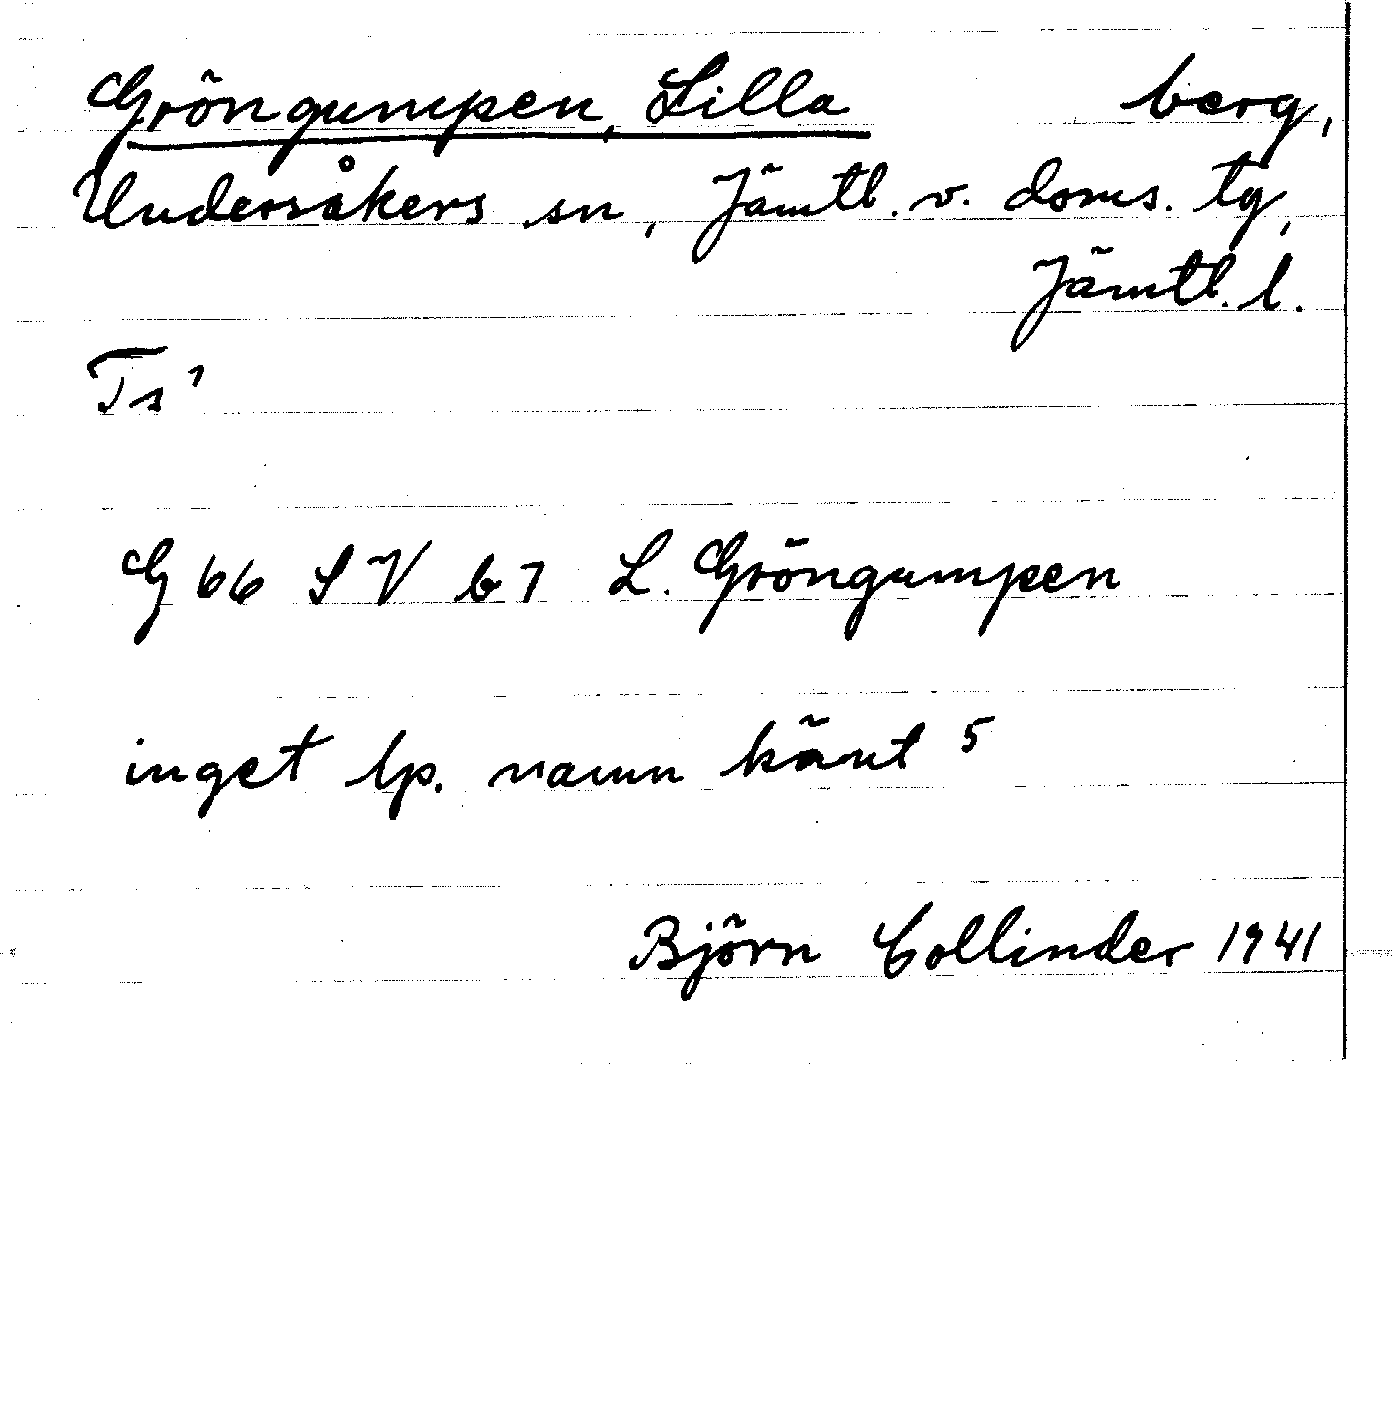 Gröngumpen, Lilla berg,
Undersåkers sn, Jämtl. v. doms. tg,
Jämtl. l.
Ts 1
G 66 SV b 7 L. Gröngumpen
inget lp. namn känt 5
Björn Collinder 1941